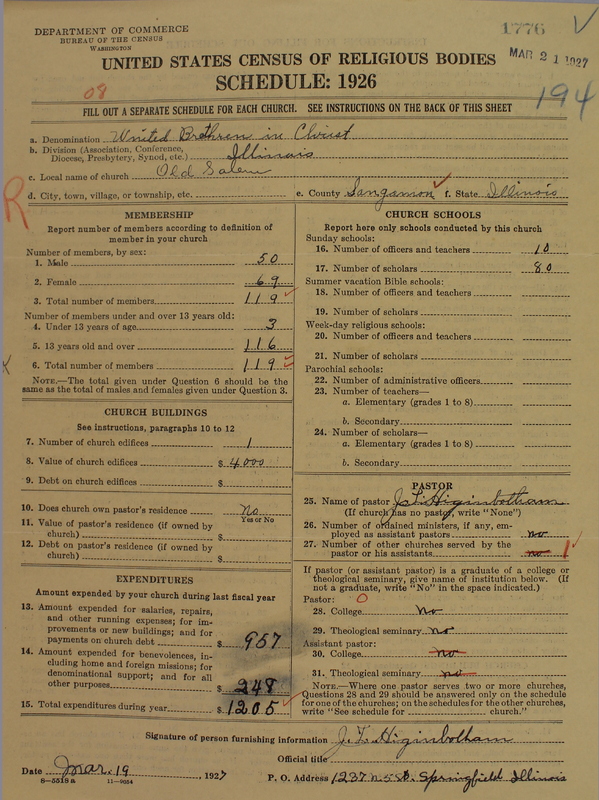 DEPARTMENT OF COMMERCE
BUREAU OF THE CENSUS
WASHINGTON
1776
MAR 21 1927
UNITED STATES CENSUS OF RELIGIOUS BODIES
SCHEDULE: 1926
08
194
FILL OUT A SEPARATE SCHEDULE FOR EACH CHURCH. SEE INSTRUCTIONS ON THE BACK OF THIS SHEET
a. Denomination United Brethren in Christ
b. Division (Association, Conference, Diocese, Presbytery, Synod, etc.) Illinois
c. Local name of church Old Salem
d. City, town, village, or township, etc.
e. County Sangamon f. State Illinois
R
MEMBERSHIP
Report number of members according to definition of
member in your church
Number of members, by sex:
1. Male 50
2. Female 69
3. Total number of members 119
Number of members under and over 13 years old:
4. Under 13 years of age 3
5. 13 years old and over 116
6. Total number of members 119
NOTE.—The total given under Question 6 should be
same as the total of males and females given under Question 3.
CHURCH BUILDINGS
See instructions, paragraphs 10 to 12
7. Number of church edifices 1
8. Value of church edifices $ 4000
9. Debt on church edifices $
10. Does church own pastor's residence No
Yes or No
11. Value of pastor's residence (if owned by
church) $
12. Debt on pastor's residence (if owned by
church) $
EXPENDITURES
Amount expended by your church during last fiscal year
13. Amount expended for salaries, repairs,
and other running expenses; for im-
provements or new buildings; and for
payments on church debt $ 957
14. Amount expended for benevolences, in-
cluding home and foreign missions; for
denominational support; and for all
other purposes $ 248
15. Total expenditures during year $ 1205
CHURCH SCHOOLS
Report here only schools conducted by this church
Sunday schools:
16. Number of officers and teachers 10
17. Number of scholars 80
Summer vacation Bible schools:
18. Number of officers and teachers
19. Number of scholars
Week-day religious schools:
20. Number of officers and teachers
21. Number of scholars
Parochial schools:
22. Number of administrative officers
23. Number of teachers—
a. Elementary (grades 1 to 8)
b. Secondary
24. Number of scholars—
a. Elementary (grades 1 to 8)
b. Secondary
PASTOR
25. Name of pastor J. T. Higinbotham
(If church has no pastor, write "None")
26. Number of ordained ministers, if any, em-
ployed as assistant pastors no
27. Number of other churches served by the
pastor or his assistants no 1
If pastor (or assistant pastor) is a graduate of a college or
theological seminary, give name of institution below. (If
not a graduate, write "No" in the space indicated.)
Pastor: 0
28. College No
29. Theological seminary No
Assistant pastor:
30. College no
31. Theological seminary no
NOTE.—Where one pastor serves two or more churches,
Questions 28 and 29 should be answered only on the schedule
for one of the churches; on the schedules for the other churches,
write "See schedule for church."
Signature of person furnishing information J. T. Higinbotham
Official title
Date Mar. 19 1927
P. O. Address 1237 N. 5 St. Springfield Illinois
8—5518a 11—9054